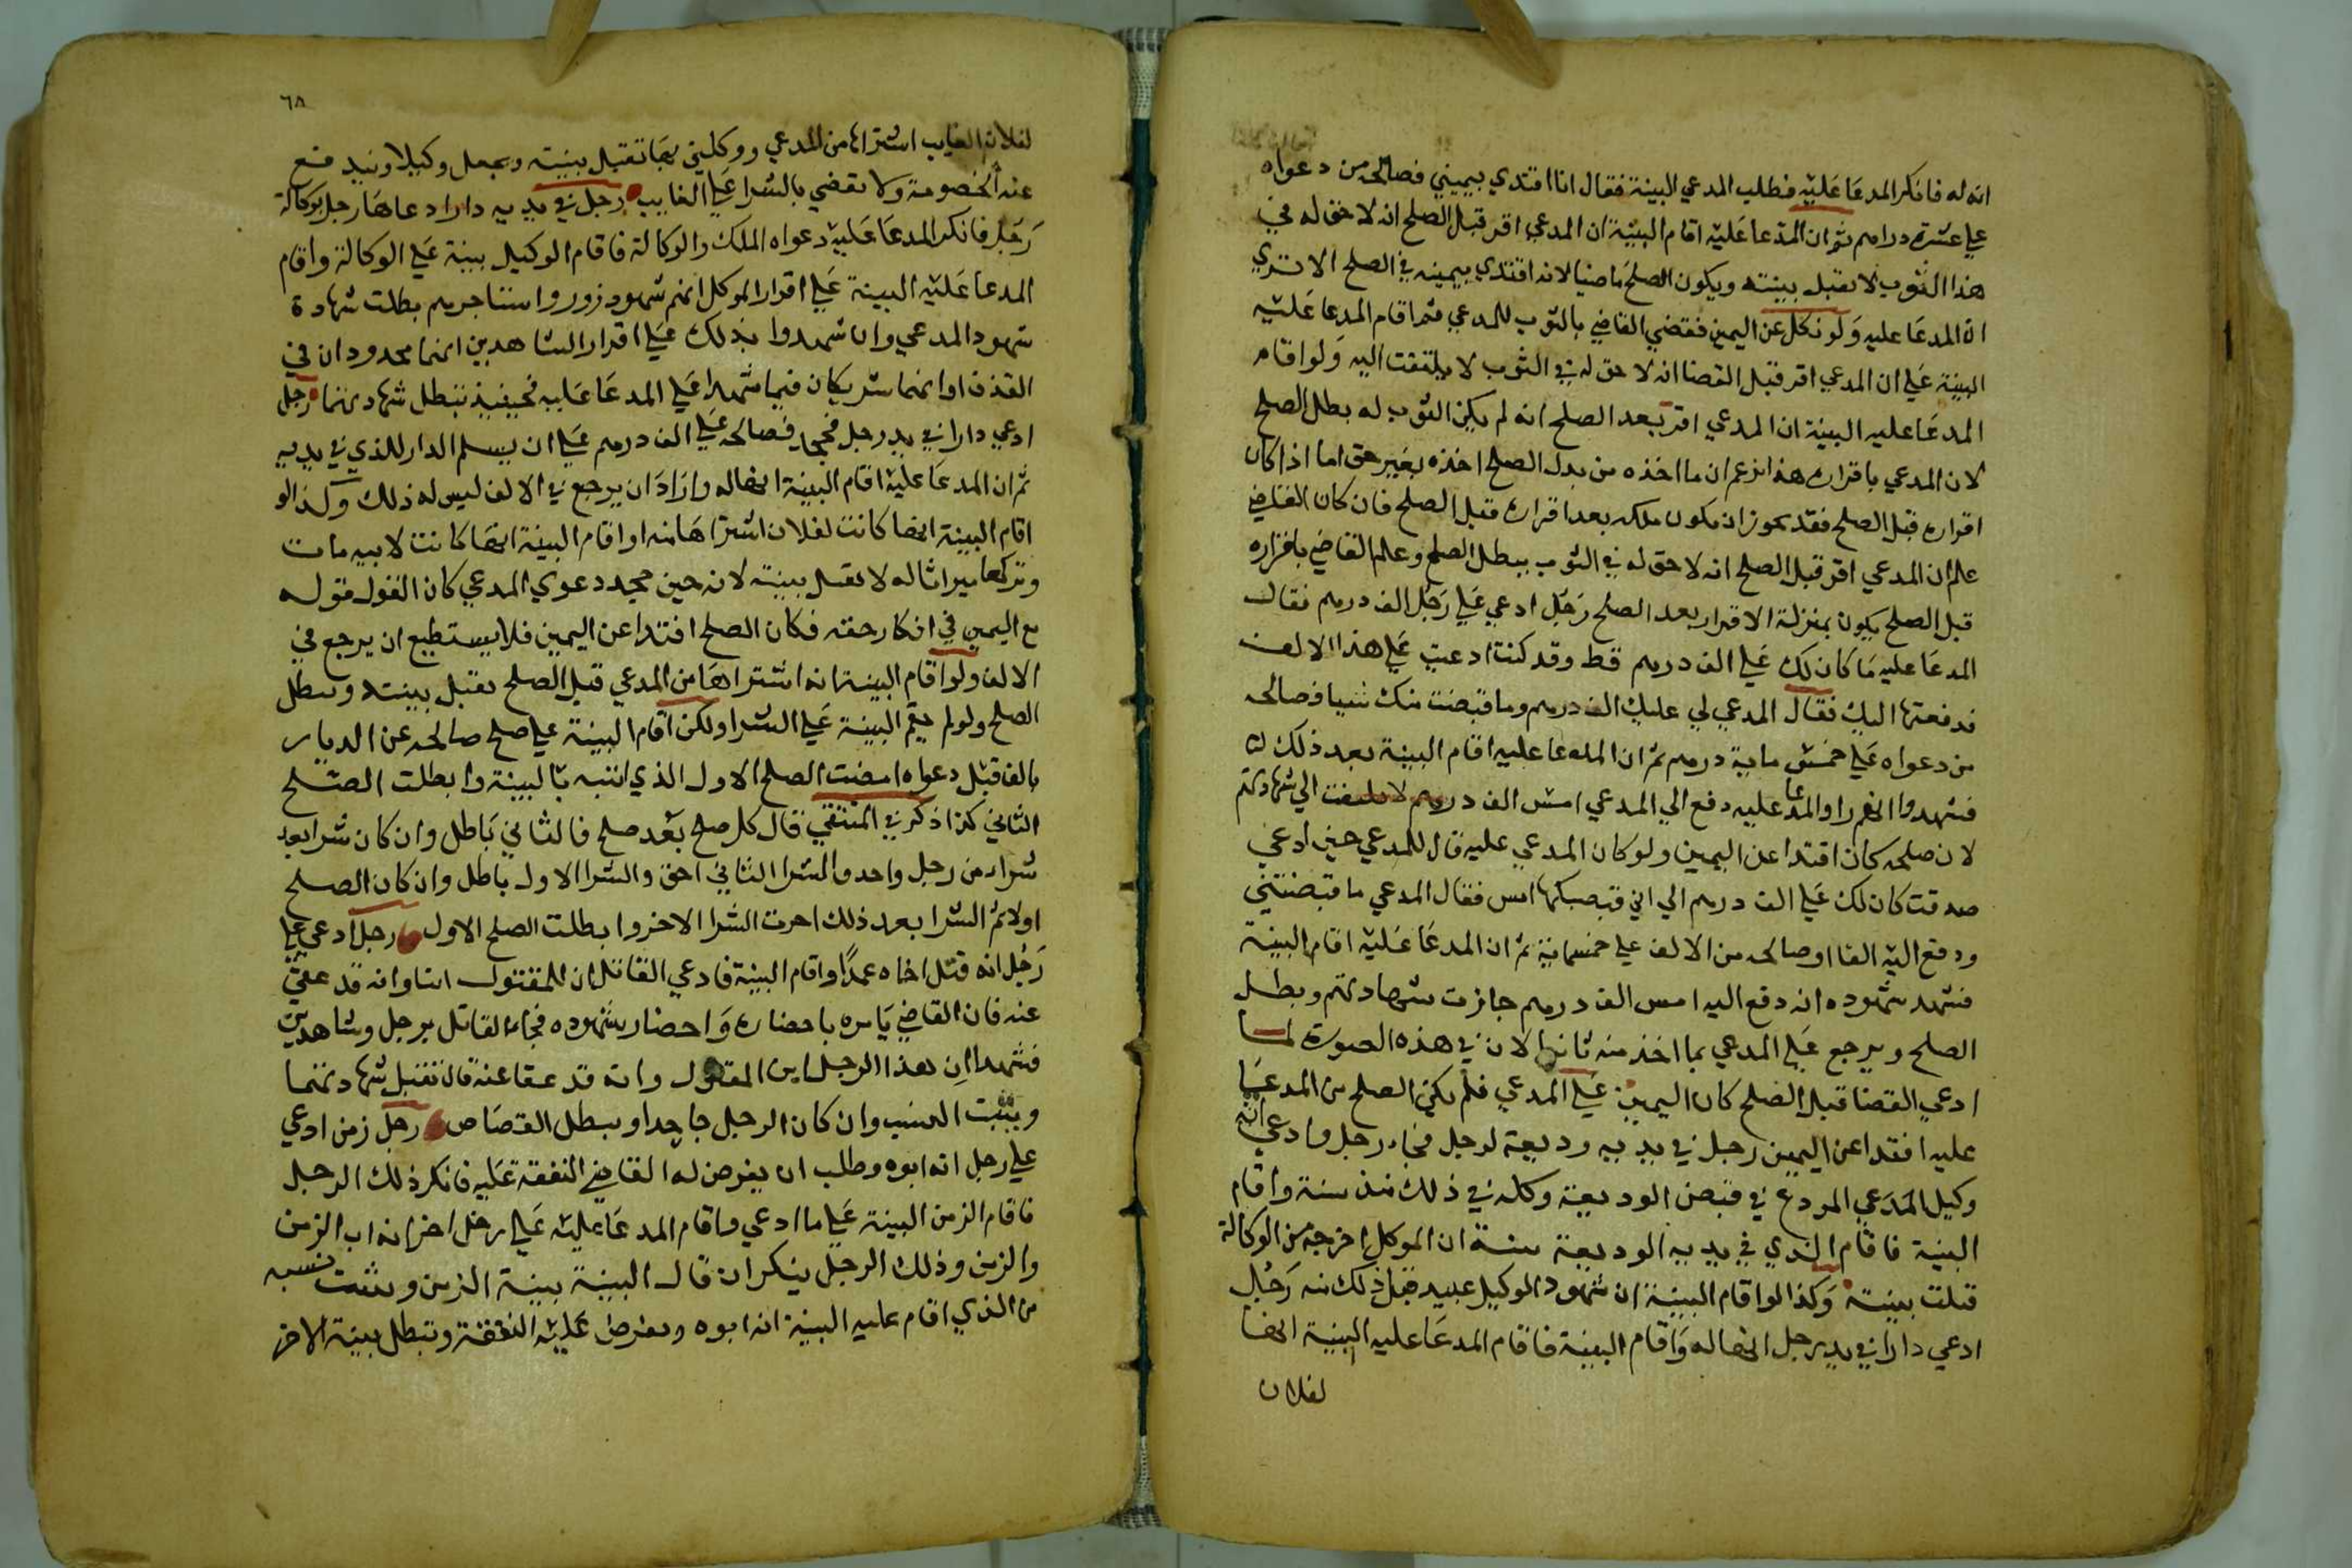 انه له فانكر المدعا عليه فطلب المدعي البينة فقال انا افتدي بيميني فصالحه من دعواه
علي عشرة دراهم ثم ان المدعا عليه اقام البينة ان المدعي اقر قبل الصلح انه لا حق له في
هذا الثوب لا تقبل بينته ويكون الصلح ماضيا لانه افتدي بيمينه في الصلح الا تري
ان المدعا عليه ولو نكل عن اليمين فقضي القاضي بالثوب للمدعي ثم اقام المدعا عليه
البينة علي ان المدعي اقر قبل القضا انه لا حق له في الثوب لا يلتفت اليه ولو اقام
المدعا عليه البينة ان المدعي اقر بعد الصلح انه لم يكن الثوب له بطل الصلح
لان المدعي باقراره هذا زعم ان ما اخذه من بدل الصلح اخذه بغير حق اما اذا كان
اقراره قبل الصلح فقد يجوز ان يكون ملكه بعد اقراره قبل الصلح فان كان القاضي
علم ان المدعي اقر قبل الصلح انه لا حق له في الثوب يبطل الصلح وعلم القاضي باقراره
قبل الصلح يكون بمنزلة الاقرار بعد الصلح رجل ادعي علي رجل الف درهم فقال
المدعا عليه ما كان لك علي الف درهم قط وقد كنت ادعيت علي هذا الالف
فدفعتها اليك فقال المدعي لي عليك الف درهم وما قبضت منك شيا فصالحه
من دعواه علي خمس ماية درهم ثم ان المدعا عليه اقام البينة بعد ذلك
فشهدوا انهم راوا المدعا عليه دفع الي المدعي امس الف درهم لا يلتفت الي شهادتهم
لان صلحه كان افتدا عن اليمين ولو كان المدعي عليه قال للمدعي حين ادعي
صدقت كان لك علي الف درهم الي اني قبضتكها امس فقال المدعي ما قبضتني
ودفع اليه الفا او صالحه من الالف علي خمسماية ثم ان المدعا عليه اقام البينة
فشهد شهوده انه دفع اليه امس الف درهم جازت شهادتهم وبطل
الصلح ويرجع علي المدعي بما اخذ منه ثانيا لان في هذه الصورة لما
ادعي القضا قبل الصلح كان اليمين علي المدعي فلم يكن الصلح من المدعا
عليه افتدا عن اليمين رجل في يديه وديعة لرجل فجاء رجل وادعي انه
وكيل المدعي المودع في قبض الوديعة وكله في ذلك منذ سنة واقام
البينة فاقام الذي في يديه الوديعة بينة ان الموكل اخرجه من الوكالة
قبلت بينته وكذا لو اقام البينة ان شهود الوكيل عبيد قبل ذلك منه رجل
ادعي دارا في يد رجل انها له واقام البينة فاقام المدعا عليه البينة انها
لفلان
٦٨
لفلان الغايب اشتراها من المدعي ووكلني بها تقبل بينته ويجعل وكيلا
عنه الخصومة ولا يقضي بالشرا علي الغايب رجل في يديه دارا ادعاها رجل بوكالة
رجل فانكر المدعا عليه دعواه الملك والوكالة فاقام الوكيل بينة علي الوكالة واقام
المدعا عليه البينة علي اقرار الموكل انهم شهود زور واستاجرهم بطلت شهادة
شهود المدعي وان شهدوا بذلك علي اقرار الشاهدين انهما محدودان في
القذف او انهما شريكان فيما شهدا علي المدعا عليه فحينيذ تبطل شهادتهما رجل
ادعي دارا في يد رجل فجحد فصالحه علي الف درهم علي ان يسلم الدار للذي في يديه
ثم ان المدعا عليه اقام البينة انها له واراد ان يرجع في الالف ليس له ذلك وكذا لو
اقام البينة انها كانت لفلان اشتراها منه او اقام البينة انها كانت لابيه مات
وتركها ميراثا له لا تقبل بينته لانه حين جحد دعوي المدعي كان القول قوله
مع اليمين في انكار حقه فكان الصلح افتدا عن اليمين فلا يستطيع ان يرجع في
الالف ولو اقام البينة انه اشتراها من المدعي قبل الصلح تقبل بينته وبطل
الصلح ولو لم يقم البينة علي الشرا ولكن اقام البينة علي صلح صالحه عن الديار
بالف قبل دعواه امضت الصلح الاول الذي اثبته بالبينة وابطلت الصلح
الثاني كذا ذكر في المنتقي قال كل صلح بعد صلح فالثاني باطل وان كان شرا بعد
شراء من رجل واحد فالشرا الثاني احق والشرا الاول باطل وان كان الصلح
اولا ثم الشرا بعد ذلك اجزت الشرا الاخر وابطلت الصلح الاول رجل ادعي علي
رجل انه قتل اخاه عمدا واقام البينة فادعي القاتل ان للمقتول ابنا وانه قد عفي
عنه فان القاضي يامره باحضاره واحضار شهوده فجاء القاتل برجل وشاهدين
فشهدا ان هذا الرجل ابن المقتول وانه قد عفا عنه قال تقبل شهادتهما
ويثبت النسب وان كان الرجل جاحدا ويبطل القصاص رجل زمن ادعي
علي رجل انه ابوه وطلب ان يفرض له القاضي النفقة عليه فانكر ذلك الرجل
فاقام الزمن البينة علي ما ادعي واقام المدعا عليه علي رجل اخر انه اب الزمن
والزمن وذلك الرجل ينكران قال البينة بينة الزمن ويثبت نسبه
من الذي اقام عليه البينة انه ابوه ويفرض عليه النفقة وتبطل بينة الاخر